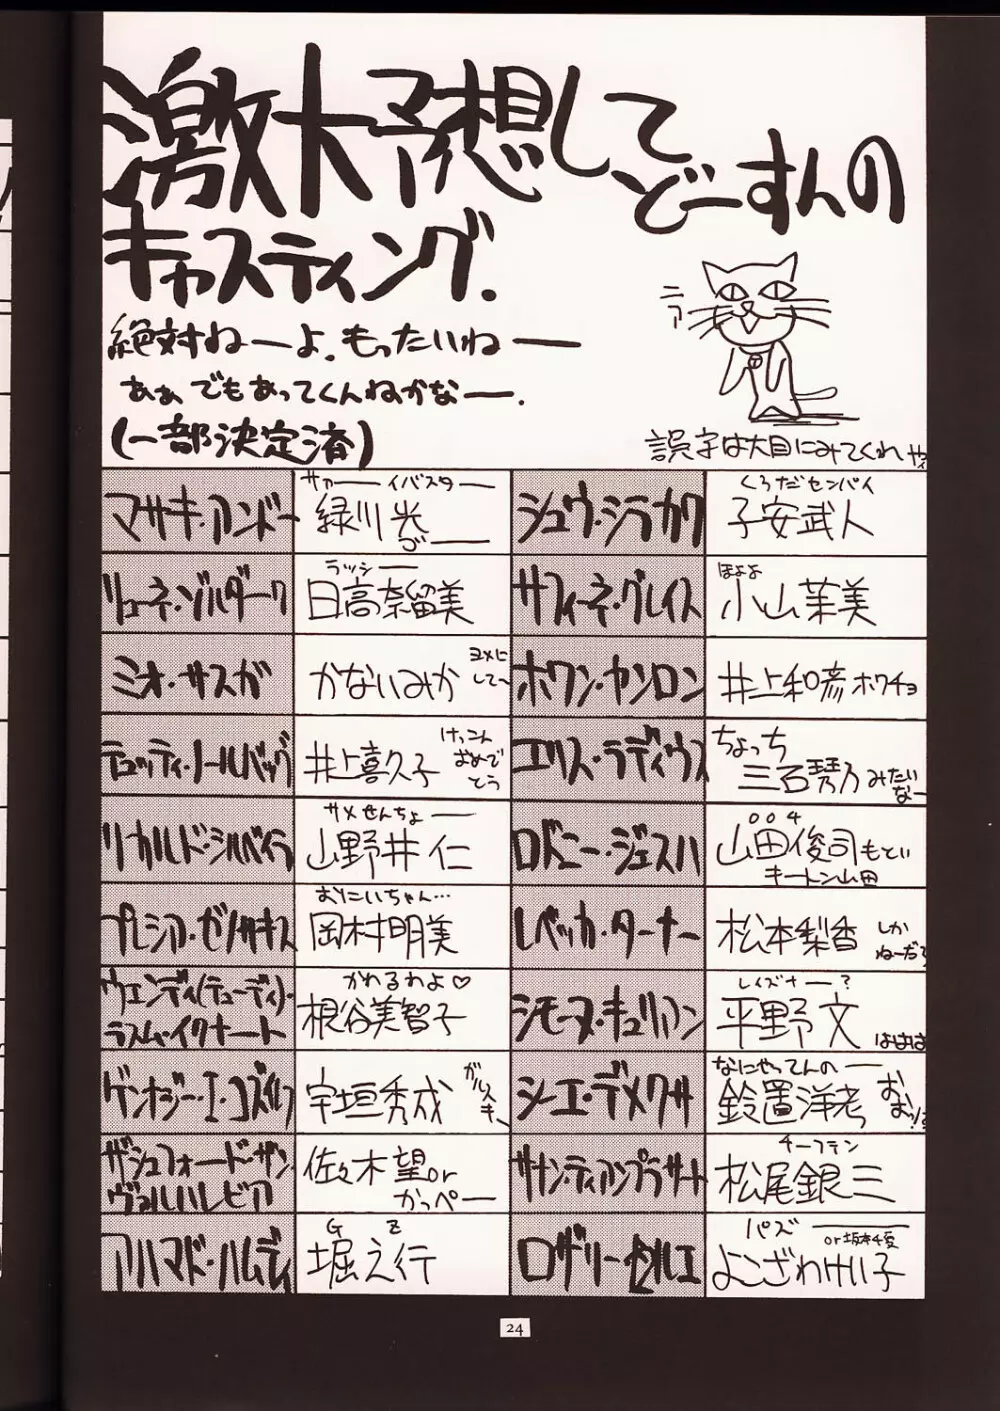 激大予想してどーすんの
キャスティング.
絶対ねーよ.もったいねー
あぁ、でもあってくんねぇかなー.
(一部決定済)
ニァ
誤字は大目にみてくれや
マサキ・アンドー
サァーーイバスター
緑川光
ゴー
シュウ・シラカワ
くろだセンパイ
子安武人
リューネ・ゾルダーク
ラッシー
日高奈留美
サフィーネ・グレイス
ほよよ
小山茉美
ミオ・サスガ
かないみか
ヨメに
して〜
ホワン・ヤンロン
井上和彦 ホワチョ
テュッティ・ノールバック
井上喜久子
けっこん
おめで
とう
エリス・ラディウス
ちょっち
三石琴乃 みたい
なー
リカルド・シルベイラ
サメせんちょー
山野井 仁
ロドニー・ジェスハ
004
山田俊司もとい
キートン山田
プレシア・ゼノサキス
おにいちゃん…
岡村明美
レベッカ・ターナー
松本梨香 しか
ねーだろ
ウェンディ(テューディ)・
ラスム・イクナート
かわるわよ♡
根谷美智子
シモーヌ・キュリアン
レイズナー?
平野 文 ははは
ゲンオジー・I・コズイレフ
宇垣秀成
シーエ・デメクサ
なにやってんのー
鈴置洋孝
ザシュフォード・ザン・
ヴァルハレビア
佐々木望or
かっぺー
サナン・ティアンプラサート
チーフテン
松尾銀三
アハマド・ハムディ
G Z
堀之行
ロザリー・セルエ
パズー
or坂本千夏
よこざわけい子
24